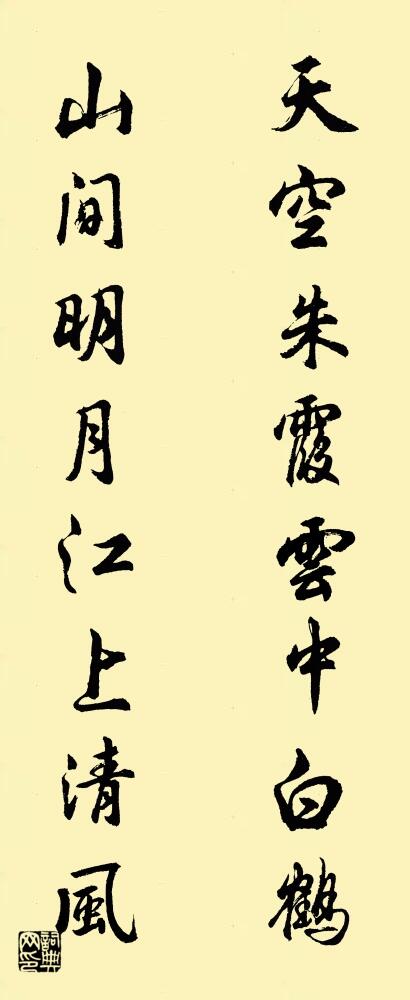 天空朱霞雲中白鶴
山間明月江上清風
詞典網印